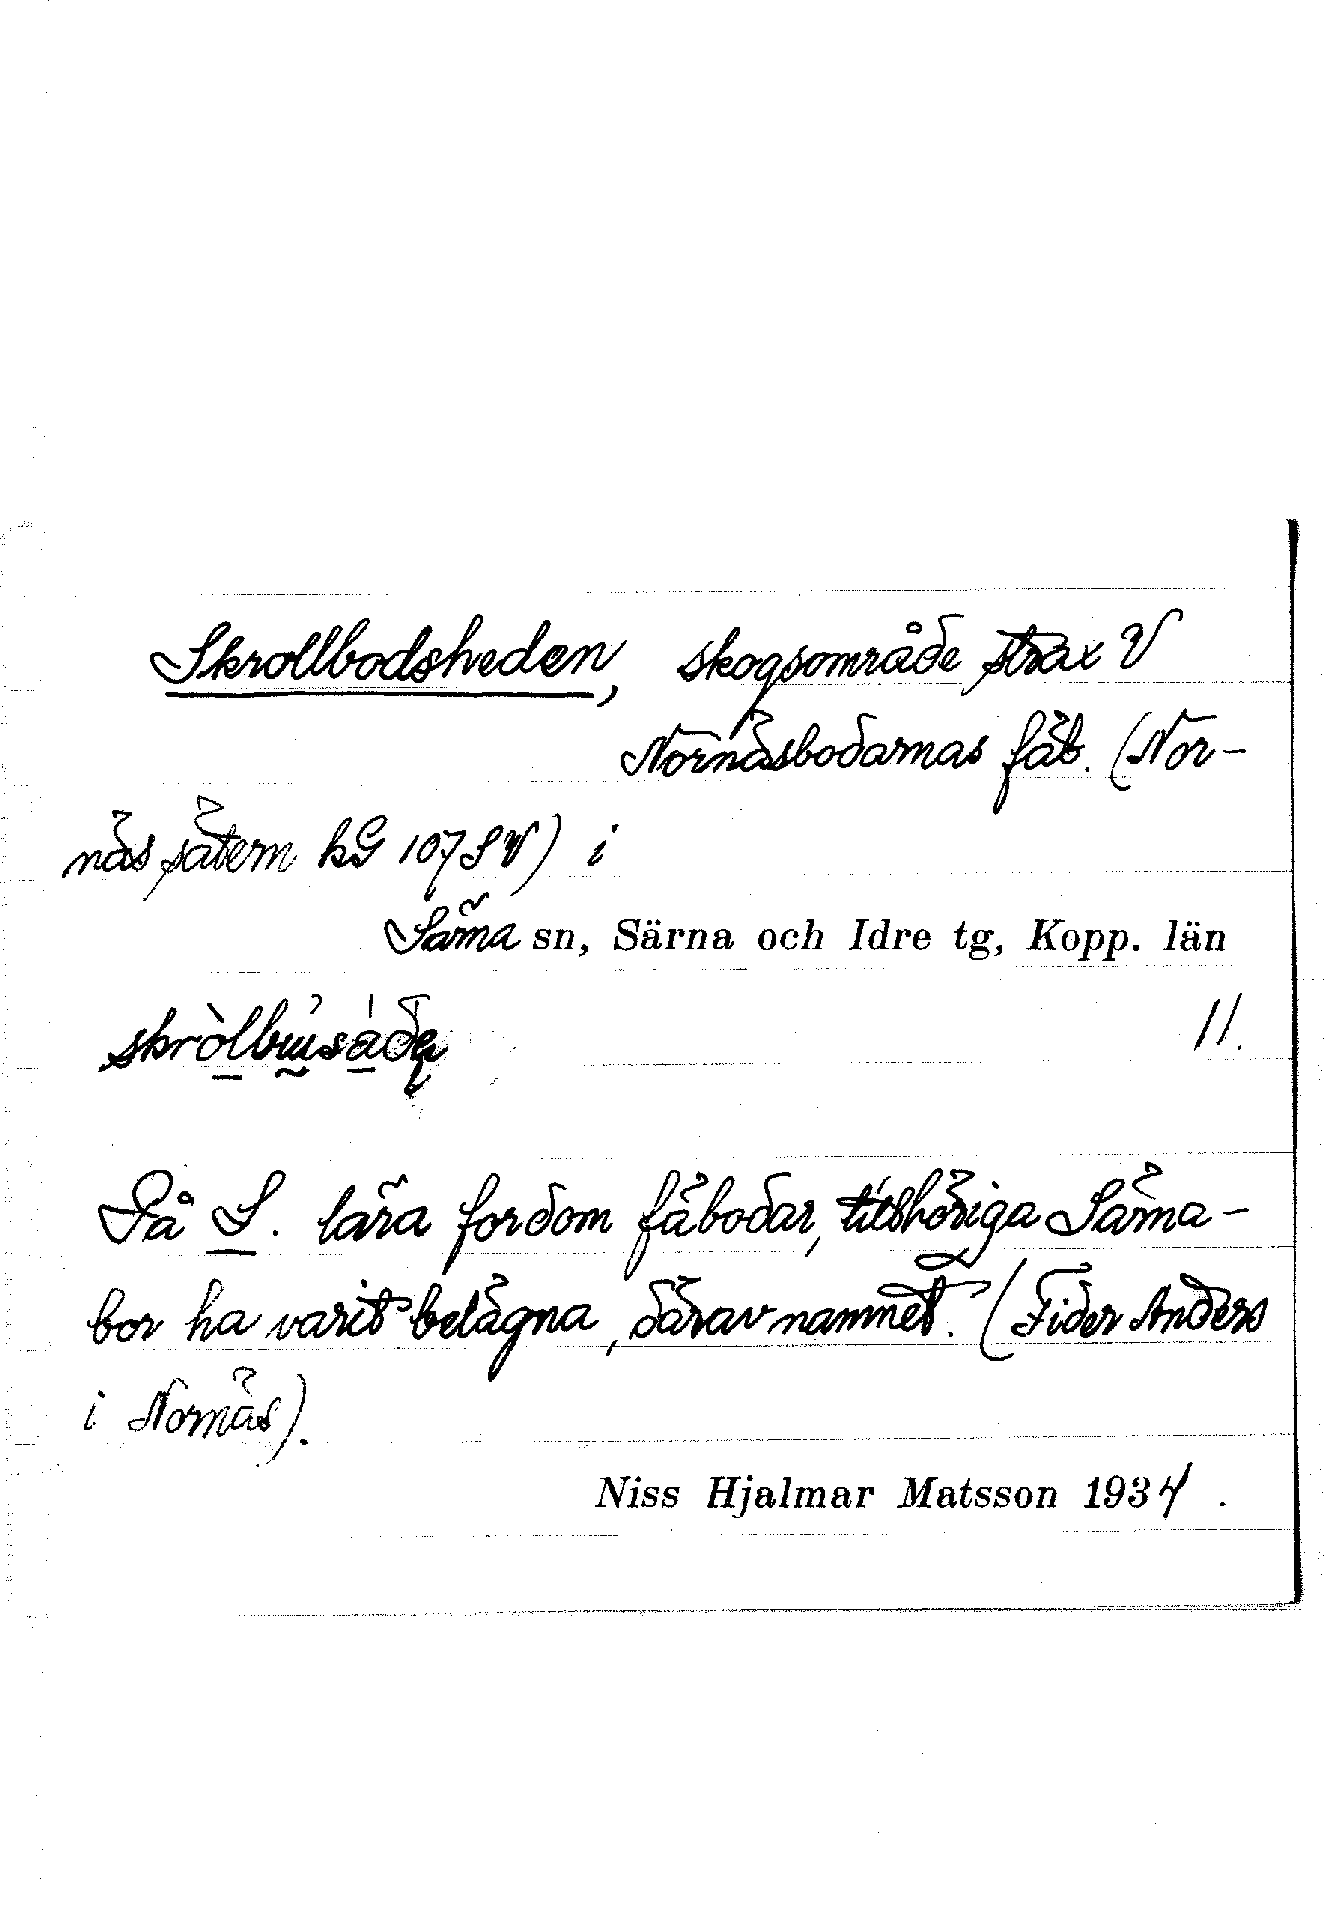 Skrollbodsheden, skogsområde strax V
Nornäsbodarnas fäb. (Nor-
näs sätern kG 107 SV) i
Särna sn, Särna och Idre tg, Kopp. län
11.
På S. lära fordom fäbodar, tillhöriga Särna-
bor ha varit belägna, därav namnet. (Fider Anders
i Nornäs).
Niss Hjalmar Matsson 1934.